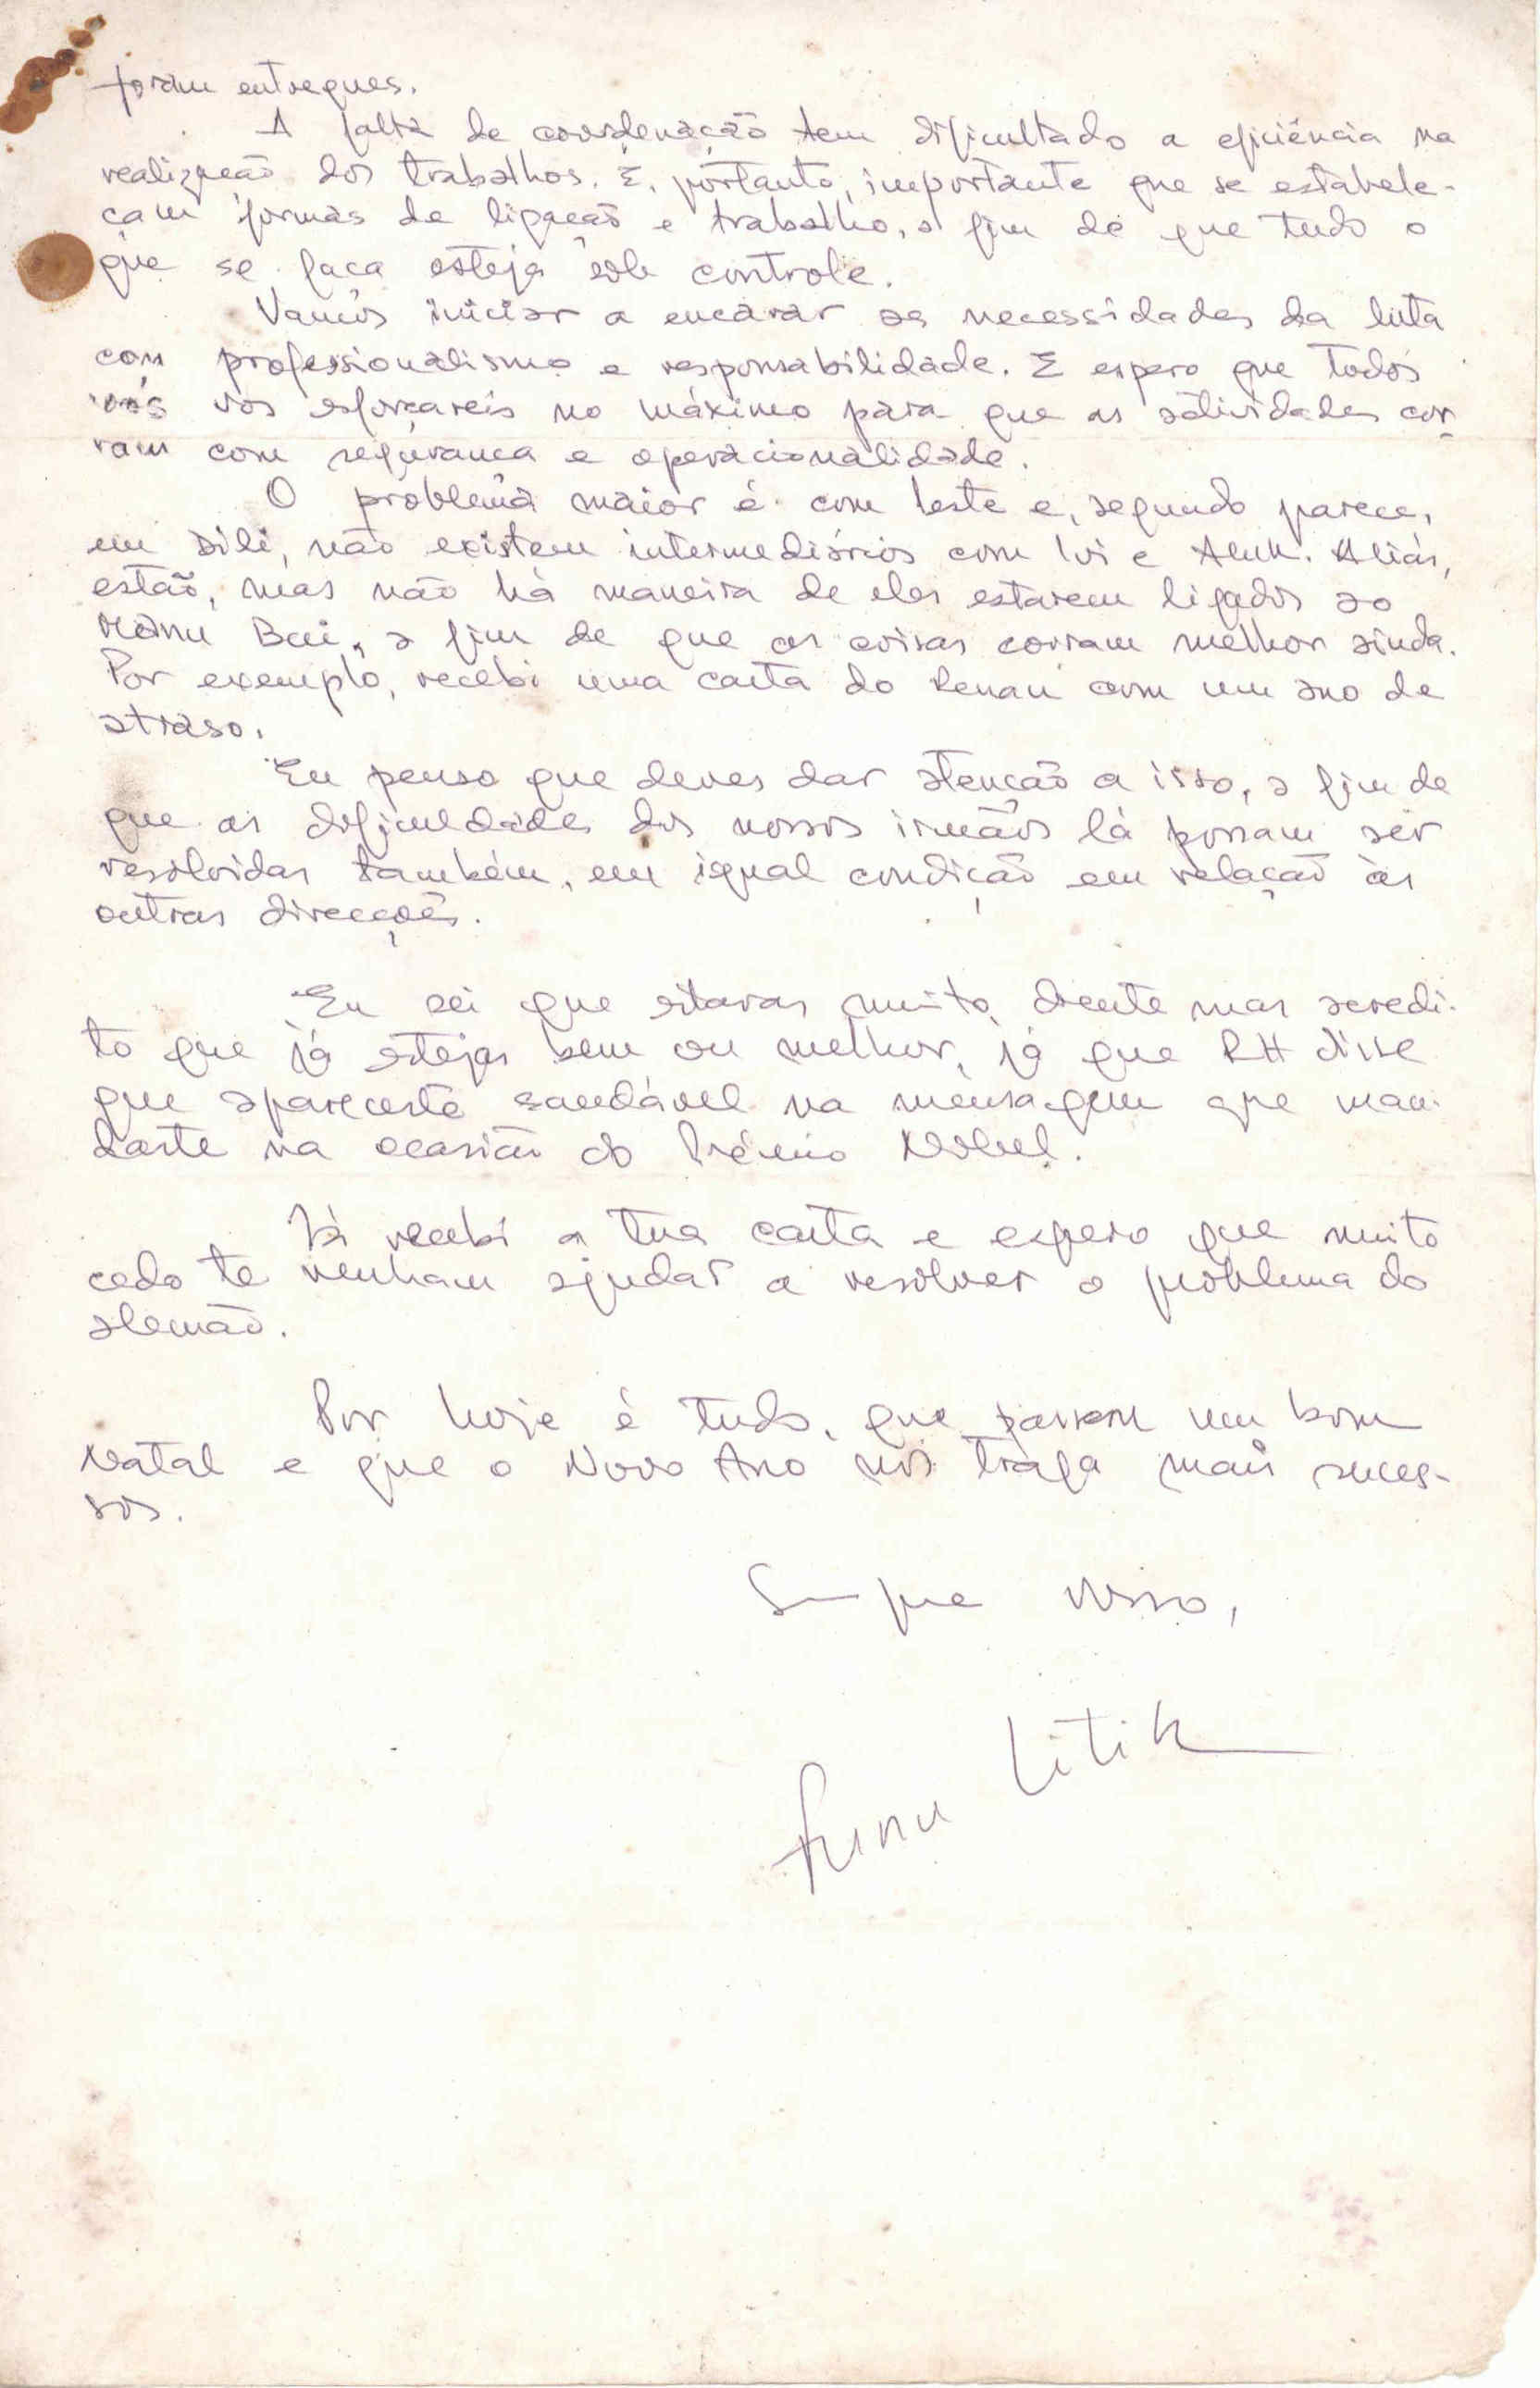 foram entregues.
A falta de coordenação tem dificultado a eficiência na
realização dos trabalhos. É, portanto, importante que se estabele-
çam formas de ligação e trabalho, a fim de que tudo o
que se faça esteja sob controle.
Vamos iniciar a encarar as necessidades da luta
com professionalismo e responsabilidade. E espero que todos
vós vos esforçareis no máximo para que as actividades cor-
ram com segurança e operacionalidade.
O problema maior é com leste e, segundo parece,
em Dili, não existem intermediários com Lui e Aluk. Aliás,
estão, mas não há maneira de eles estarem ligados ao
Manu Bui, a fim de que as coisas corram melhor ainda.
Por exemplo, recebi uma carta do Renan com um ano de
atraso.
Eu penso que deves dar atenção a isso, a fim de
que as dificuldades dos nossos irmãos lá possam ser
resolvidas também, em igual condição em relação às
outras direcções.
Eu sei que estavas muito doente mas acredi-
to que já estejas bem ou melhor, já que RH disse
que apareceste saudável na mensagem que man-
daste na ocasião do Prémio Nobel.
Já recebi a tua carta e espero que muito
cedo te venham ajudar a resolver o problema do
alemão.
Por hoje é tudo, que passem um bom
Natal e que o Novo Ano nos traga mais suces-
sos.
Sempre vosso,
Funu Litik